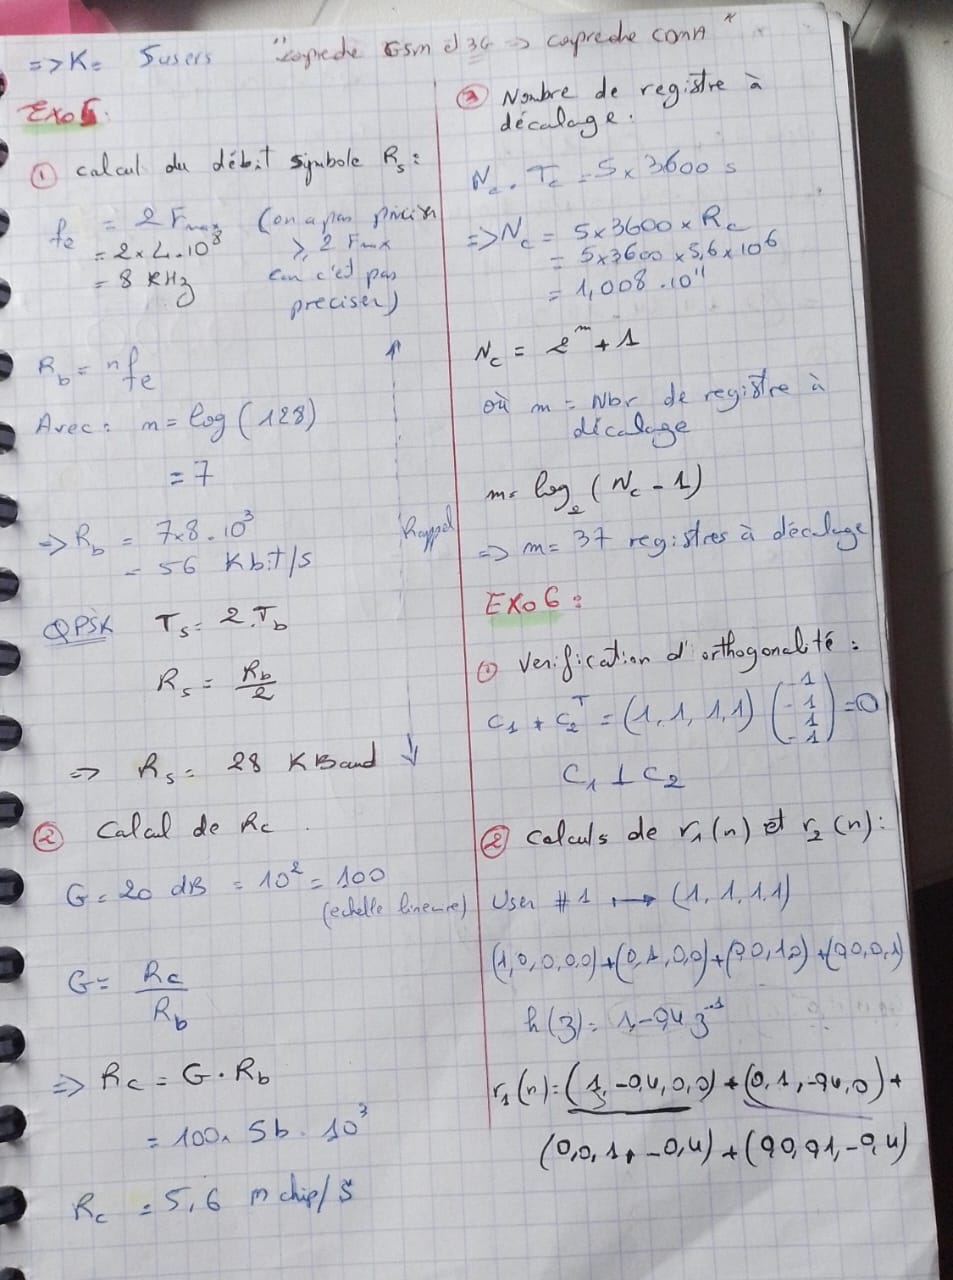 => K = 5 users
Exo 5
① Calcul du débit symbole Rs :
fe = 2 Fmax (on a pas
= 2 × 4.10³ ≥ 2 Fmax
= 8 KHz c'est pas
preciser)
Rb = n fe
Avec : m = log (128)
= 7
=> Rb = 7×8.10³
= 56 Kbit/s
Rappel
QPSK Ts = 2.Tb
Rs = Rb/2
=> Rs = 28 KBaud
② Calcul de Rc.
G = 20 dB = 10² = 100
(echelle lineaire)
G = Rc/Rb
=> Rc = G . Rb
= 100 × 56 . 10³
Rc = 5,6 m chip/s
③ Nombre de registre à
décalage.
Nc . Tc = 5 × 3600 s
=> Nc = 5×3600 × Rc
= 5×3600 × 5,6 × 10⁶
= 1,008 . 10¹¹
Nc = 2^m + 1
où m = Nbr de registre à
décalage
m = log₂ (Nc - 1)
=> m = 37 registres à décalage
EXo 6 :
① Verification d'orthogonalité :
C₁ * C₂ᵀ = (1, 1, 1, 1) (-1 -1 1 -1) = 0
C₁ ⊥ C₂
② Calculs de r₁(n) et r₂(n) :
User #1 ↦ (1, 1, 1, 1)
(1,0,0,0,0) + (0,1,0,0) + (0,0,1,0) + (0,0,0,1)
h(z) = 1 - 0,4 z⁻¹
r₁(n) = (1, -0,4, 0, 0) + (0, 1, -0,4, 0) +
(0,0, 1, -0,4) + (0,0, 0,1, -0,4)